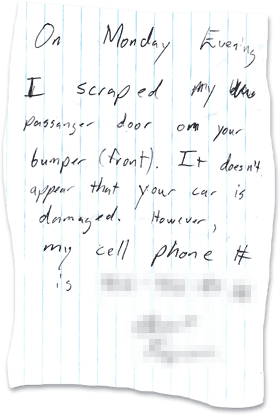 On Monday Evening
I scraped my
passanger door on your
bumper (front). It doesn't
appear that your car is
damaged. However,
my cell phone #
is